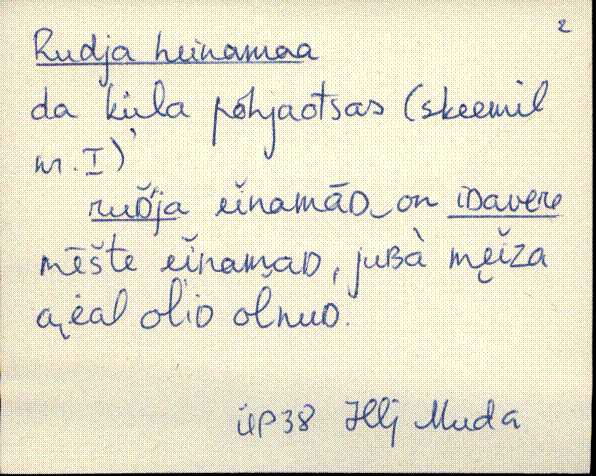 2
Rudja heinamaa
da küla põhjaotsas (skeemil
nr. I)
ruᴅ̌'ja eĭnamāᴅ on iᴅavere
mēšte eĭnamaᴅ, juʙà męĭza
aįėal ol'iᴅ olnuᴅ.
ÜP38 Hlj Muda